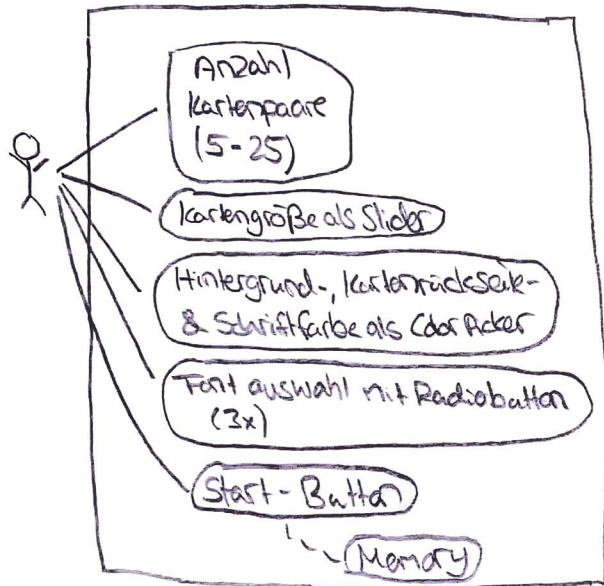 Anzahl
Kartenpaare
(5-25)
Kartengröße als Slider
Hintergrund-, Kartenrückseite-
& Schriftfarbe als Color Picker
Font auswahl mit Radiobutton
(3x)
Start-Button
Memory